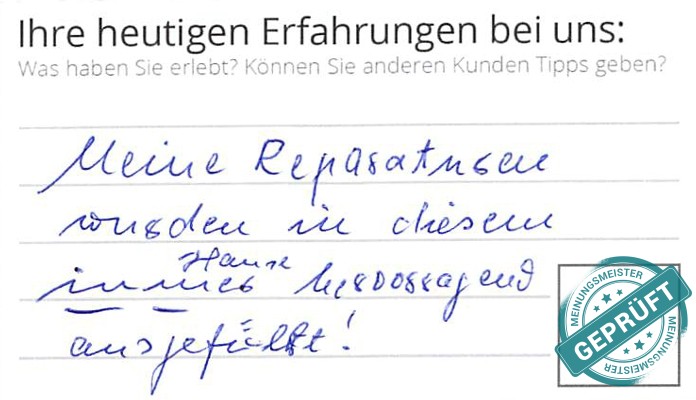 Ihre heutigen Erfahrungen bei uns:
Was haben Sie erlebt? Können Sie anderen Kunden Tipps geben?
Meine Reparaturen
wurden in diesem
Hause
immer hervorragend
ausgefüllt!
MEINUNGSMEISTER
GEPRÜFT
MEINUNGSMEISTER